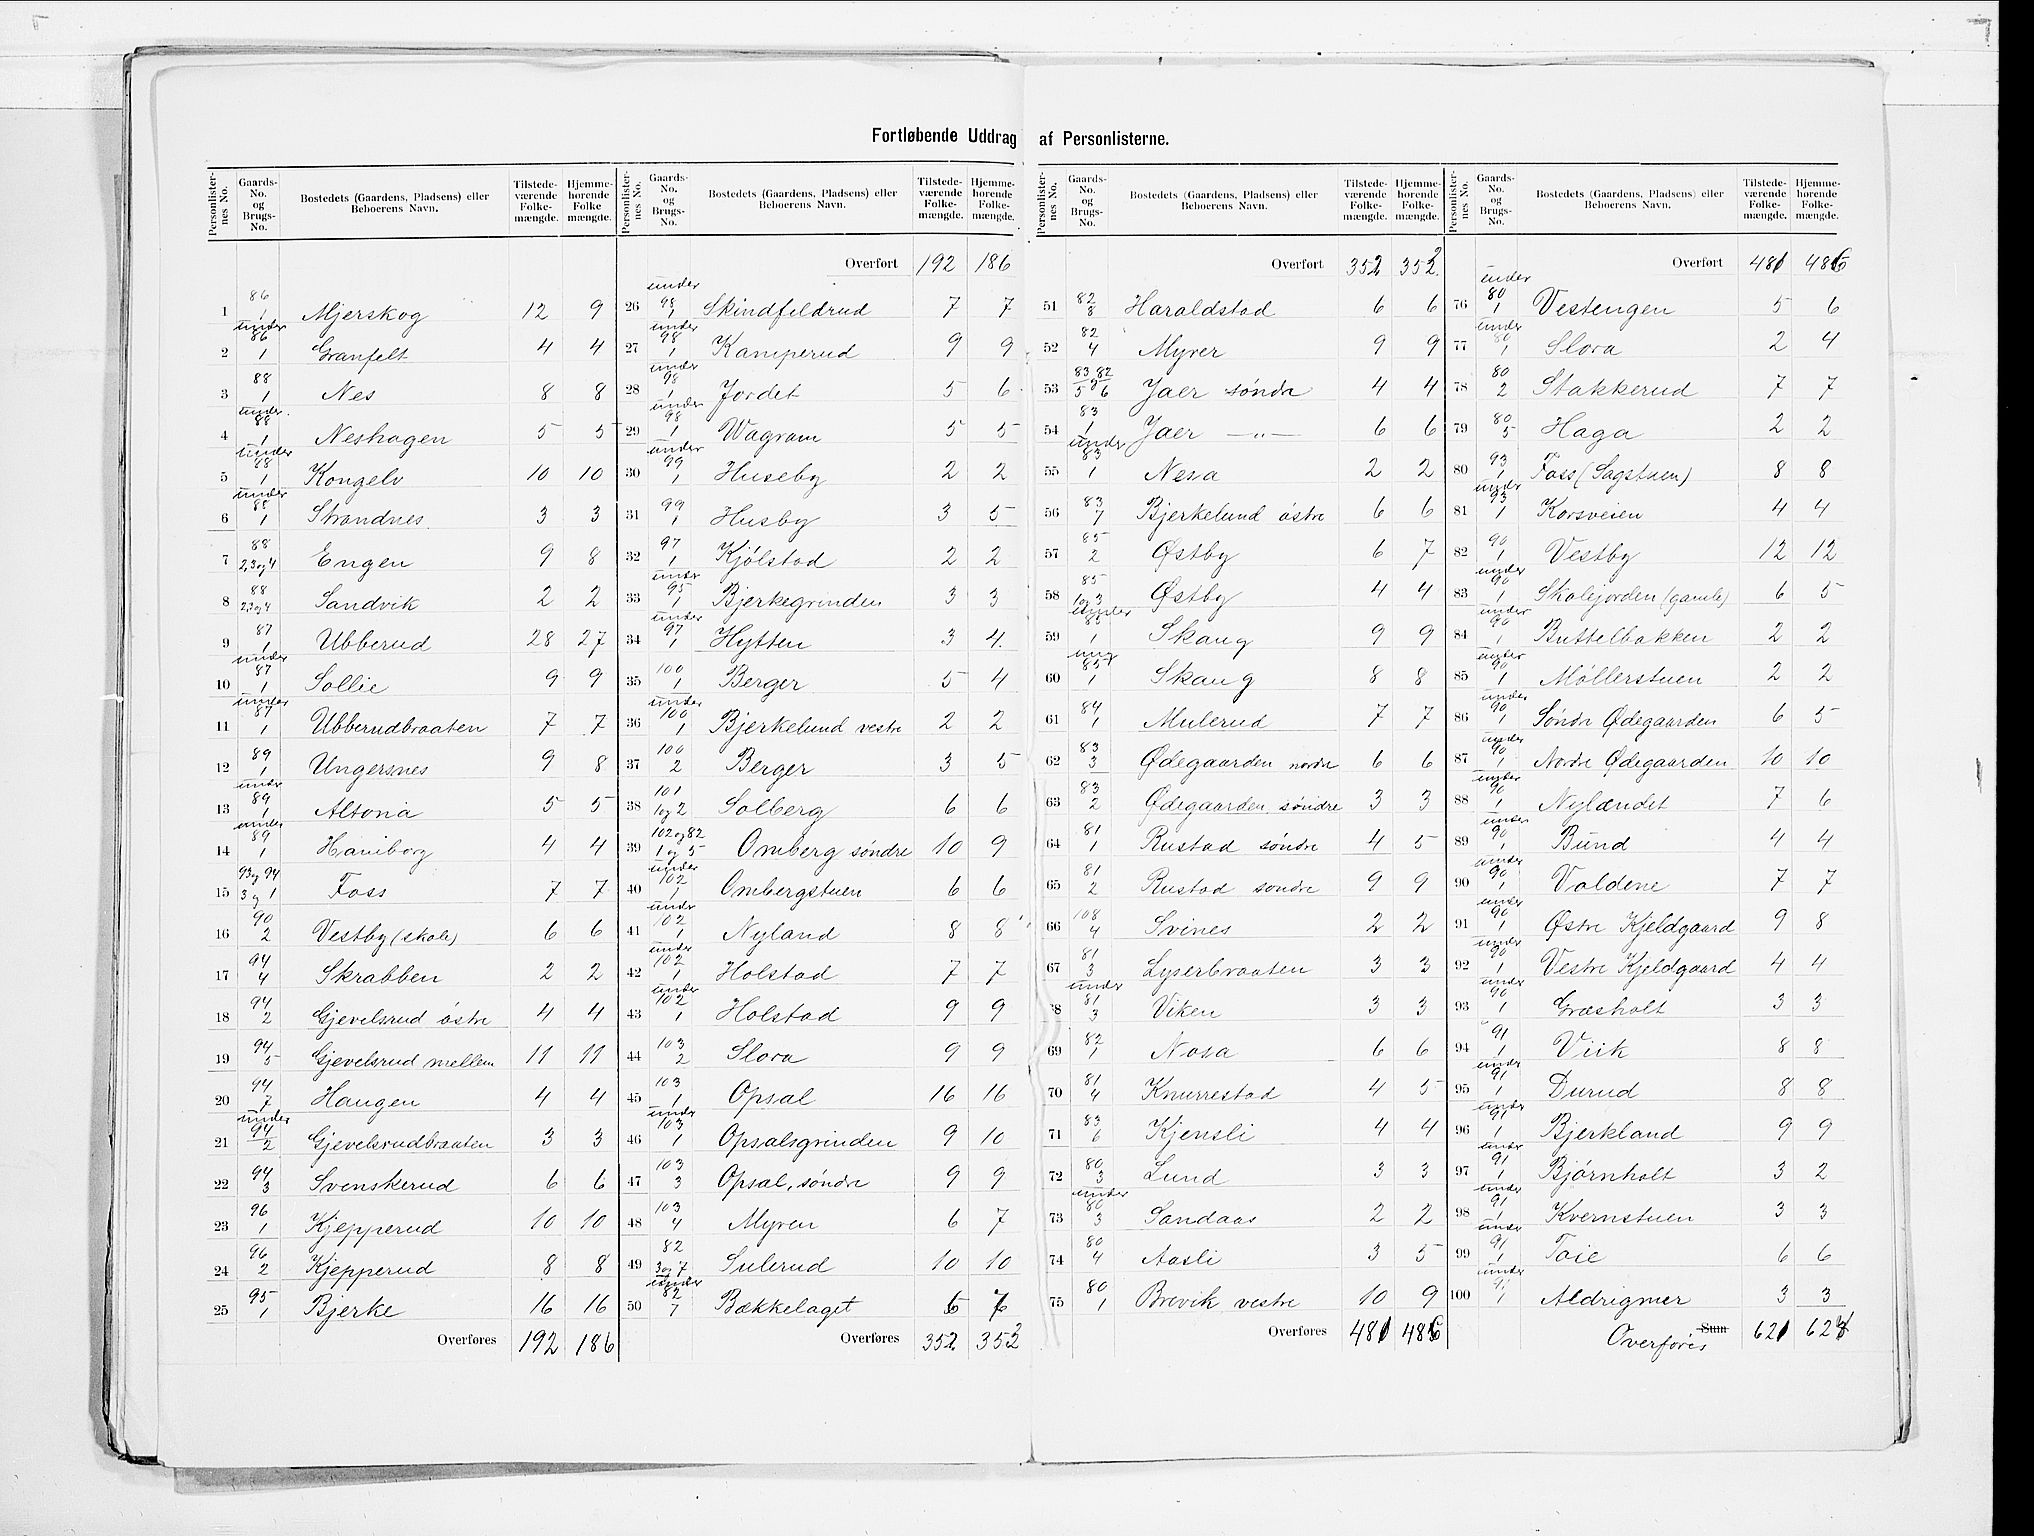 Fortløbende Uddrag af Personlisterne.
Personlisternes No. | Gaards-No. og Brugs-No. | Bostedets (Gaardens, Pladsens) eller Beboerens Navn. | Tilstedeværende Folkemængde. | Hjemmehørende Folkemængde.
1 | 86 1 | Mjerskog | 12 | 9
2 | under 86 1 | Granfelt | 4 | 4
3 | 88 1 | Nes | 8 | 8
4 | under 88 1 | Neshagen | 5 | 5
5 | under 88 1 | Kongelv | 10 | 10
6 | under 88 1 | Strandnes | 3 | 3
7 | 88 2,3 og 4 | Engen | 9 | 8
8 | 88 2,3 og 4 | Sandvik | 2 | 2
9 | 87 1 | Ubberud | 28 | 27
10 | under 87 1 | Sollie | 9 | 9
11 | under 87 1 | Ubberudbraaten | 7 | 7
12 | 89 1 | Ungersnes | 9 | 8
13 | under 89 1 | Altona | 5 | 5
14 | under 89 1 | Haniborg | 4 | 4
15 | 93 og 94 3 og 1 | Foss | 7 | 7
16 | 90 2 | Vestby (skole) | 6 | 6
17 | 94 4 | Skrabben | 2 | 2
18 | 94 2 | Gjevelsrud østre | 4 | 4
19 | 94 5 | Gjevelsrud mellem | 11 | 11
20 | 94 7 | Haugen | 4 | 4
21 | under 94 2 | Gjevelsrudbraaten | 3 | 3
22 | 94 3 | Svenskerud | 6 | 6
23 | 96 1 | Kjepperud | 10 | 10
24 | 96 2 | Kjepperud | 8 | 8
25 | 95 1 | Bjerke | 16 | 16
Overføres | 192 | 186
Personlisternes No. | Gaards-No. og Brugs-No. | Bostedets (Gaardens, Pladsens) eller Beboerens Navn. | Tilstedeværende Folkemængde. | Hjemmehørende Folkemængde.
Overført | 192 | 186
26 | under 98 1 | Skindfeldrud | 7 | 7
27 | under 98 1 | Kamperud | 9 | 9
28 | under 98 1 | Jordet | 5 | 6
29 | under 98 1 | Wagram | 5 | 5
30 | under 99 1 | Huseby | 2 | 2
31 | 99 1 | Husby | 3 | 5
32 | 97 1 | Kjølstad | 2 | 2
33 | under 95 1 | Bjerkegrinden | 3 | 3
34 | under 97 1 | Hytten | 3 | 4
35 | 100 1 | Berger | 5 | 4
36 | under 100 1 | Bjerkelund vestre | 2 | 2
37 | 100 2 | Berger | 3 | 5
38 | 101 1 og 2 | Solberg | 6 | 6
39 | 102 og 82 1 og 5 | Omberg søndre | 10 | 9
40 | under 102 1 | Ombergstuen | 6 | 6
41 | under 102 1 | Nyland | 8 | 8
42 | under 102 1 | Holstad | 7 | 7
43 | under 102 1 | Holstad | 9 | 9
44 | 103 2 | Slora | 9 | 9
45 | 103 1 | Opsal | 16 | 16
46 | under 103 1 | Opsalsgrinden | 9 | 10
47 | 103 3 | Opsal, søndre | 9 | 9
48 | 103 4 | Myren | 6 | 7
49 | 82 3 og 7 | Sulerud | 10 | 10
50 | under 82 7 | Bækkelaget | 6 | 7
Overføres | 352 | 352
Personlisternes No. | Gaards-No. og Brugs-No. | Bostedets (Gaardens, Pladsens) eller Beboerens Navn. | Tilstedeværende Folkemængde. | Hjemmehørende Folkemængde.
Overført | 352 | 352
51 | 82 8 | Haraldstad | 6 | 6
52 | 82 4 | Myrer | 9 | 9
53 | 83 82 5 & 6 | Jaer søndre | 4 | 4
54 | 83 1 | Jaer —"— | 6 | 6
55 | under 83 1 | Nesa | 2 | 2
56 | 83 7 | Bjerkelund østre | 6 | 6
57 | 85 2 | Østby | 6 | 7
58 | 85 1 og 3 | Østby | 4 | 4
59 | under 85 1 | Skaug | 9 | 9
60 | 85 1 | Skaug | 8 | 8
61 | 84 1 | Mulerud | 7 | 7
62 | 83 3 | Ødegaarden nordre | 6 | 6
63 | 83 2 | Ødegaarden søndre | 3 | 3
64 | 81 1 | Rustad søndre | 4 | 5
65 | 81 2 | Rustad søndre | 9 | 9
66 | 108 4 | Svines | 2 | 2
67 | 81 3 | Lyserbraaten | 3 | 3
68 | under 81 3 | Viken | 3 | 3
69 | 82 1 | Nosa | 6 | 6
70 | 81 4 | Knurrestad | 4 | 5
71 | 83 6 | Kjensli | 4 | 4
72 | 80 3 | Lund | 3 | 3
73 | under 80 3 | Sandaas | 2 | 2
74 | 80 4 | Aasli | 3 | 5
75 | 80 1 | Brevik vestre | 10 | 9
Overføres | 481 | 486
Personlisternes No. | Gaards-No. og Brugs-No. | Bostedets (Gaardens, Pladsens) eller Beboerens Navn. | Tilstedeværende Folkemængde. | Hjemmehørende Folkemængde.
Overført | 481 | 486
76 | under 80 1 | Vestengen | 5 | 6
77 | under 80 1 | Slora | 2 | 4
78 | 80 2 | Stakkerud | 7 | 7
79 | 80 5 | Haga | 2 | 2
80 | 93 1 | Foss (Sagstuen) | 8 | 8
81 | under 93 1 | Korsveien | 4 | 4
82 | 90 1 | Vestby | 12 | 12
83 | under 90 1 | Skolejorden (gamle) | 6 | 5
84 | under 90 1 | Buttelbakken | 2 | 2
85 | under 90 1 | Møllerstuen | 2 | 2
86 | under 90 1 | Søndre Ødegaarden | 6 | 5
87 | under 90 1 | Nordre Ødegaarden | 10 | 10
88 | under 90 1 | Nylændet | 7 | 6
89 | under 90 1 | Bund | 4 | 4
90 | under 90 1 | Voldene | 7 | 7
91 | under 90 1 | Østre Kjeldgaard | 9 | 8
92 | under 90 1 | Vestre Kjeldgaard | 4 | 4
93 | under 90 1 | Græsholt | 3 | 3
94 | 91 1 | Viik | 8 | 8
95 | under 91 1 | Durud | 8 | 8
96 | under 91 1 | Bjerkland | 9 | 9
97 | under 91 1 | Bjørnholt | 3 | 2
98 | under 91 1 | Kvernstuen | 3 | 3
99 | under 91 1 | Toie | 6 | 6
100 | under 91 1 | Aldrigmer | 3 | 3
Sum Overføres | 621 | 624